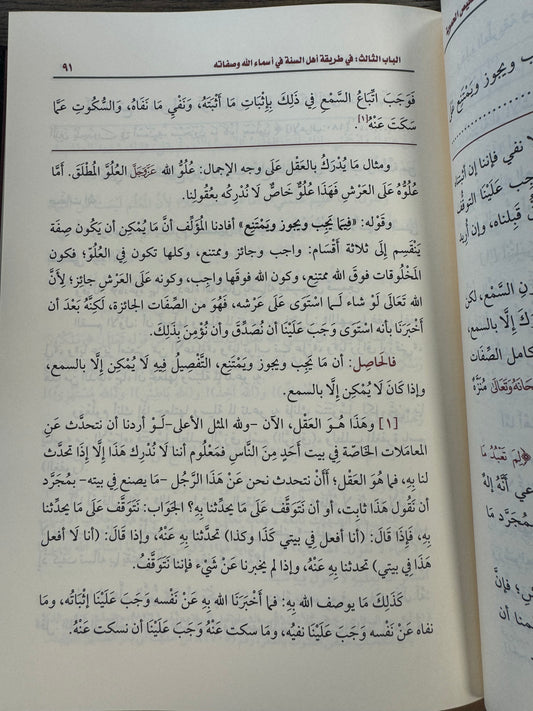 الباب الثالث: في طريقة أهل السنة في أسماء الله وصفاته
٩١
فَوَجَبَ اتِّبَاعُ السَّمْعِ فِي ذَلِكَ بِإِثْبَاتِ مَا أَثْبَتَهُ، وَنَفْيِ مَا نَفَاهُ، وَالسُّكُوتِ عَمَّا
سَكَتَ عَنْهُ[١].
ومثال مَا يُدْرَكُ بالعَقْل عَلَى وجه الإجمال: عُلُوُّ الله عَزَّوَجَلَّ العُلُوَّ المُطْلَق. أمَّا
عُلُوُّهُ عَلَى العَرْشِ فَهَذَا عُلُوٌّ خَاصٌّ لَا نُدْرِكُه بعُقُولِنا.
وقَوْله: «فِيمَا يَجِب ويجوز ويَمْتَنِع» أفادنا المُؤَلِّف أنَّ مَا يُمْكِن أن يَكُون صِفَة
يَنْقَسِم إِلَى ثلاثة أَقْسَام: واجب وجائز وممتنع، وكلها تكون فِي العُلُوّ؛ فكون
المَخْلُوقات فوقَ الله ممتنِع، وكون الله فوقَها واجِب، وكونه عَلَى العَرْشِ جائِز؛ لِأَنَّ
الله تَعَالَى لَوْ شاء لَـما اسْتَوَى عَلَى عَرْشه، فَهُوَ من الصِّفَات الجائزة، لَكِنَّهُ بَعْدَ أن
أخْبَرَنَا بأنه اسْتَوَى وَجَبَ عَلَيْنَا أن نُصَدِّق وأن نُؤْمِنَ بِذَلِكَ.
فالحَاصِل: أن مَا يَجِب ويجوز ويَمْتَنِع، التَّفْصِيلُ فِيهِ لَا يُمْكِن إِلَّا بالسمع،
وإذا كَانَ لَا يُمْكِن إِلَّا بالسمع.
[١] وَهَذَا هُوَ العَقْل، الآن -ولله المثل الأعلى- لَـوْ أردنا أن نتحدَّث عَنِ
المعاملات الخاصَّة فِي بيت أَحَدٍ مِنَ النَّاسِ فمَعْلُوم أننا لَا نُدْرِك هَذَا إِلَّا إِذَا تحدَّث
لنا بِهِ، فما هُوَ العَقْل؛ أَأَنْ نتحدث نحن عَنْ هَذَا الرَّجُل -ما يصنع فِي بيته- بِمُجَرَّد
أن نَقُول هَذَا ثابت، أو أن نَتَوَقَّف عَلَى مَا يحدِّثنا بِهِ؟ الجَوَاب: نَتَوَقَّف عَلَى مَا يحدِّثنا
بِهِ، فَإِذَا قَالَ: (أنا أفعل فِي بيتي كَذَا وكذا) تحدثنا بِهِ عَنْهُ، وإذا قَالَ: (أنا لا أفعل
هَذَا فِي بيتي) تحدثنا بِهِ عَنْهُ، وإذا لم يخبرنا عَنْ شَيْء فإننا نَتَوَقَّفُ.
كَذَلِكَ مَا يوصف الله بِهِ: فما أَخْبَرَنَا الله بِهِ عَنْ نَفْسه وَجَبَ عَلَيْنَا إثْبَاتُه، ومَا
نفاه عَنْ نَفْسه وَجَبَ عَلَيْنَا نفيُه، ومَا سكت عَنْهُ وَجَبَ عَلَيْنَا أن نسكت عَنْهُ.